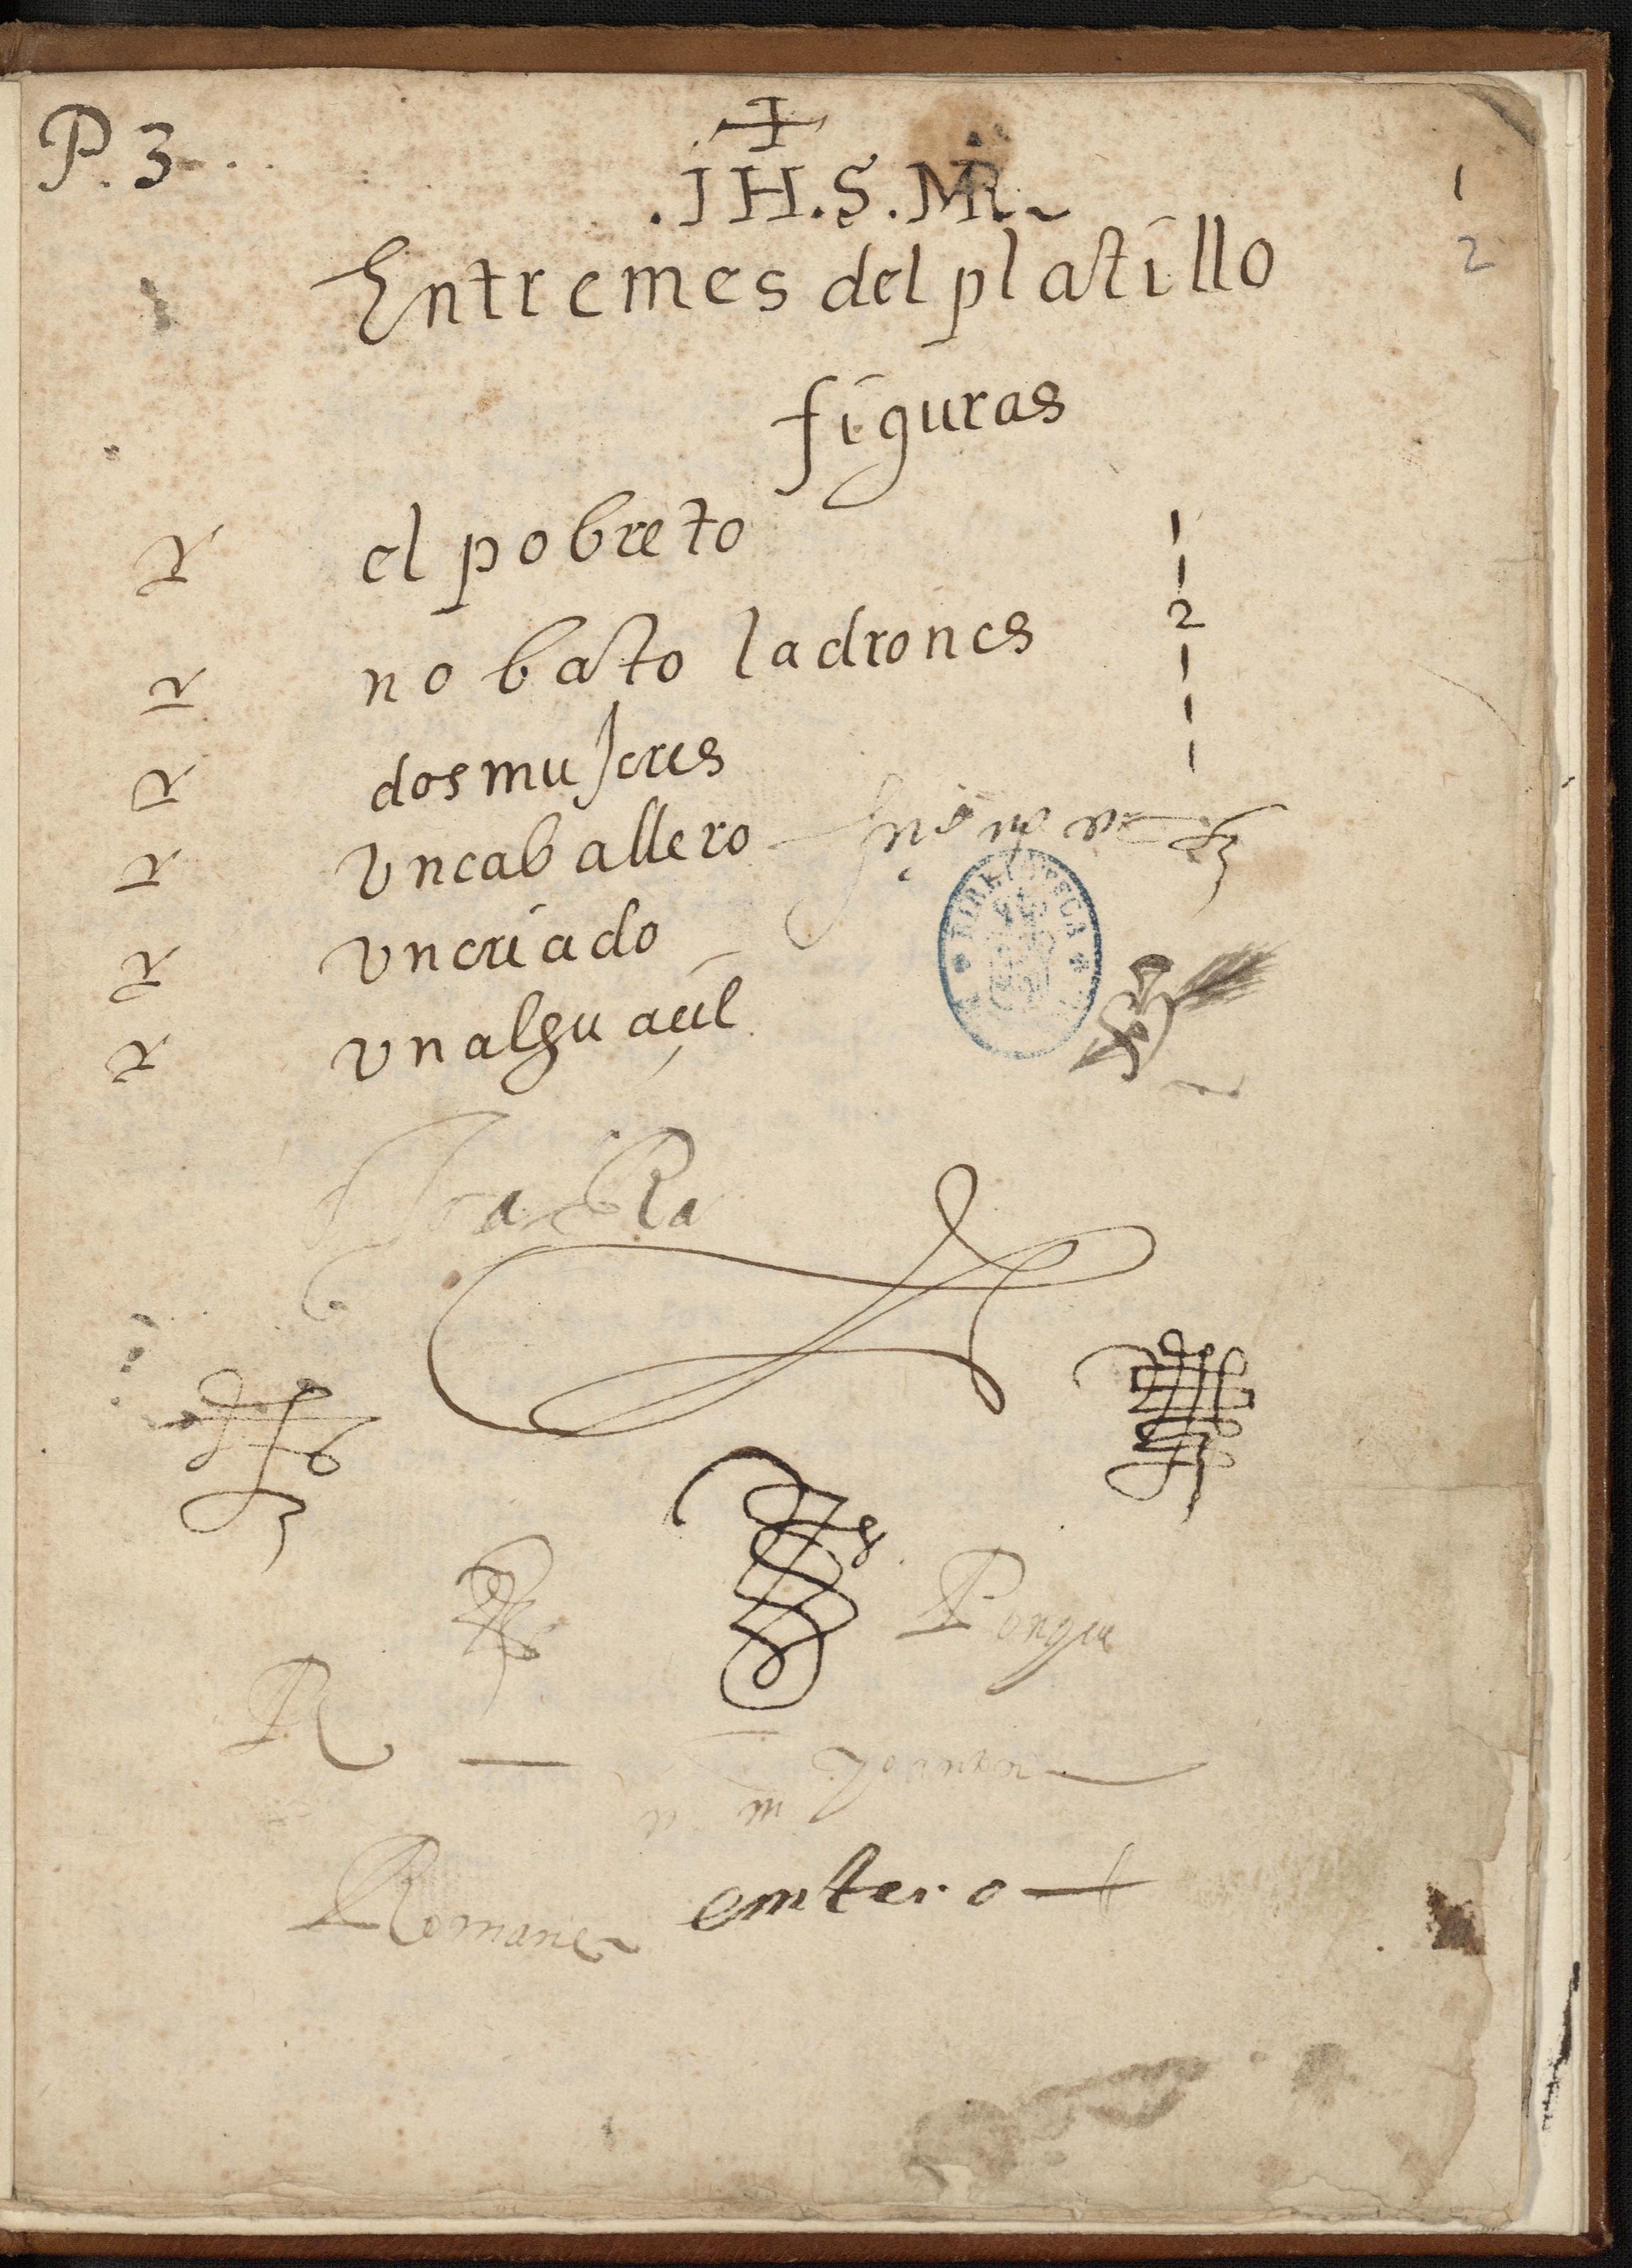 P. 3
.JHS.MR~
1
2
Entremes del platillo
figuras
R el pobreto 1
R no bato ladrones 1
2
R dos mujeres 1
R Vn caballero 1
R vn criado 1
R vn alguacil
BIBLIOTECA
Ra
Pongui
R
Romane
emtero